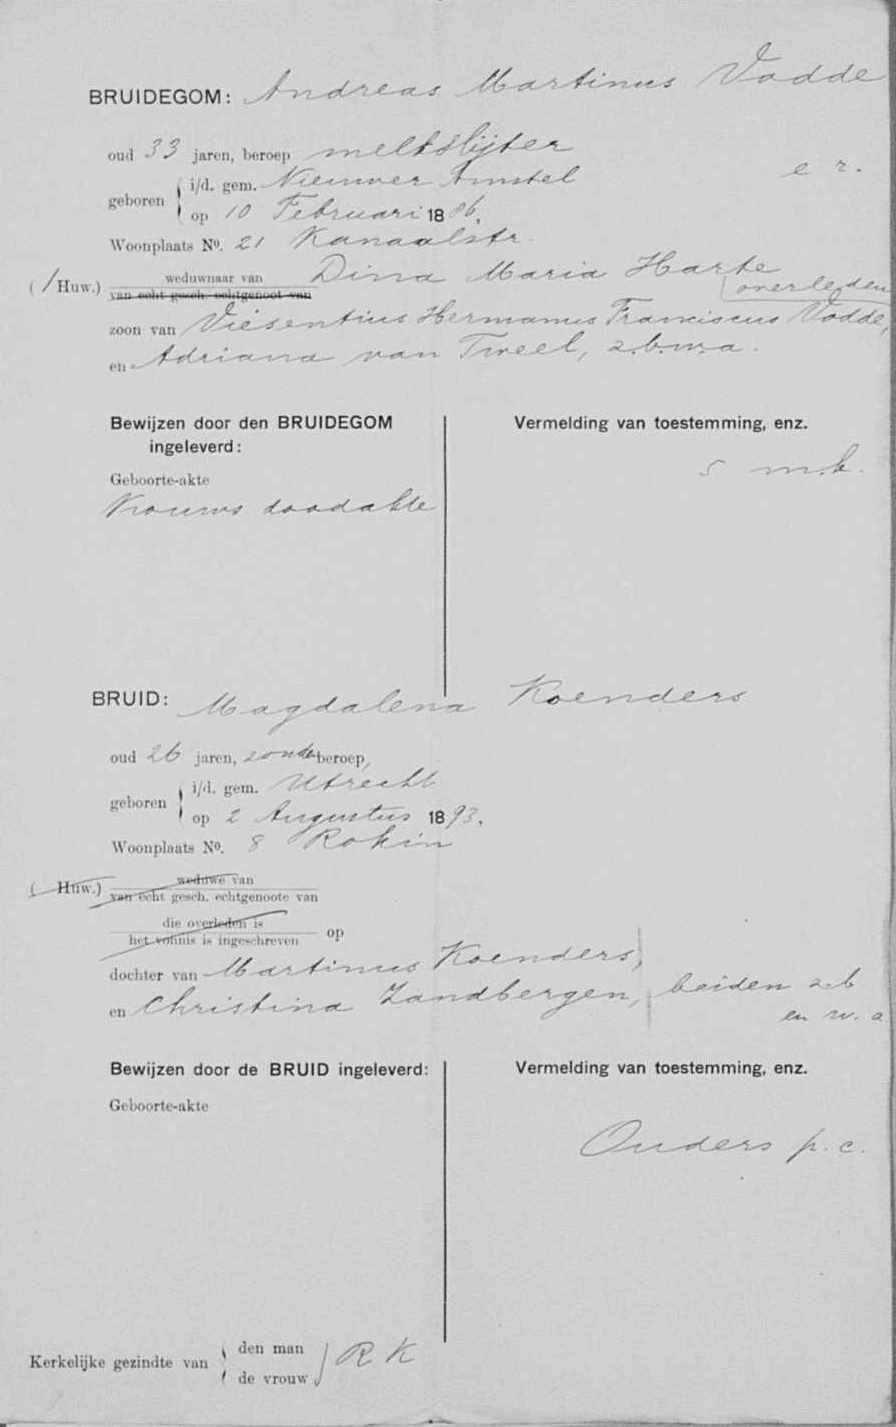 BRUIDEGOM: Andreas Martinus Vodde
oud 33 jaren, beroep melkslijter
geboren i/d. gem. Nieuwer Amstel e r.
op 10 Februari 1886,
Woonplaats No. 21 Kanaalstr.
(1 Huw.) weduwnaar van Dina Maria Harte
van echt gesch. echtgenoot van overleden
zoon van Viesentius Hermanus Franciscus Vodde,
en Adriana van Tweel, z.b.w.a.
Bewijzen door den BRUIDEGOM Vermelding van toestemming, enz.
ingeleverd:
5 m.k.
Geboorte-akte
Vrouws doodakte
BRUID: Magdalena Koenders
oud 26 jaren, zonder beroep,
geboren i/d. gem. Utrecht
op 2 Augustus 1893,
Woonplaats No. 8 Rokin
( Huw.) weduwe van
van echt gesch. echtgenoote van
die overleden is
het vonnis is ingeschreven op
dochter van Martinus Koenders,
en Christina Zandbergen, beiden z.b
en w. a
Bewijzen door de BRUID ingeleverd: Vermelding van toestemming, enz.
Geboorte-akte
Ouders p. c.
Kerkelijke gezindte van den man R K
de vrouw